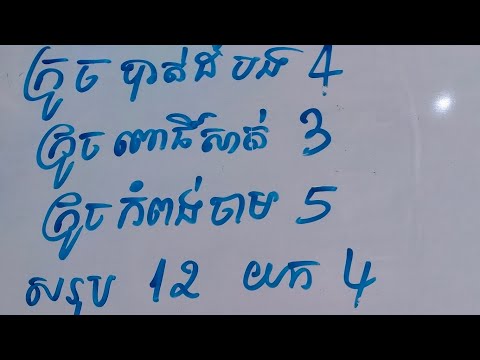 ក្រូចបាត់ដំបង 4
ក្រូចពោធិ៍សាត់ 3
ក្រូចកំពង់ចាម 5
សរុប 12 យក 4